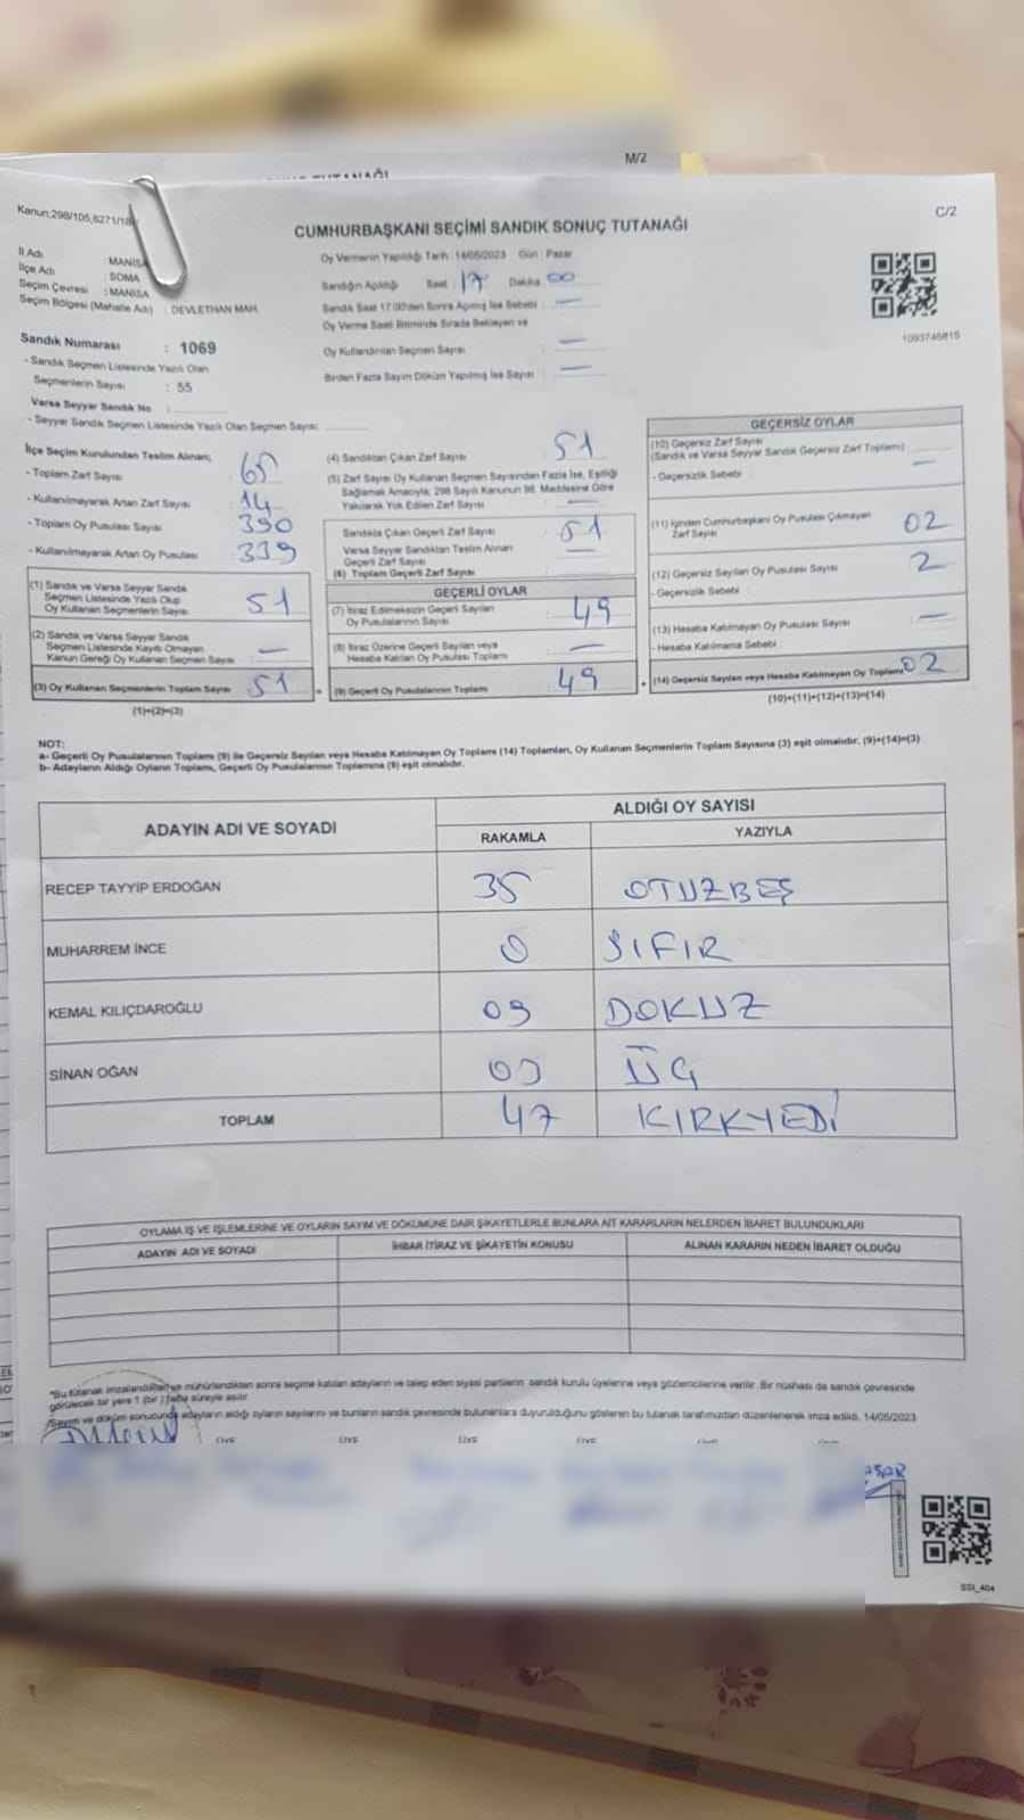 M/2
C/2
Kanun:298/105,6271/18
CUMHURBAŞKANI SEÇİMİ SANDIK SONUÇ TUTANAĞI
İl Adı : MANİSA
İlçe Adı : SOMA
Seçim Çevresi : MANİSA
Seçim Bölgesi (Mahalle Adı) : DEVLETHAN MAH.
Sandık Numarası : 1069
- Sandık Seçmen Listesinde Yazılı Olan
Seçmenlerin Sayısı : 55
Varsa Seyyar Sandık No :
- Seyyar Sandık Seçmen Listesinde Yazılı Olan Seçmen Sayısı:
Oy Vermenin Yapıldığı Tarih : 14/05/2023 Gün : Pazar
Sandığın Açıldığı Saat 17 Dakika 00
Sandık Saat 17.00'den Sonra Açılmış İse Sebebi : —
Oy Verme Saati Bitiminde Sırada Bekleyen ve
Oy Kullandırılan Seçmen Sayısı : —
Birden Fazla Sayım Döküm Yapılmış İse Sayısı : —
1093746815
İlçe Seçim Kurulundan Teslim Alınan;
- Toplam Zarf Sayısı 65
- Kullanılmayarak Artan Zarf Sayısı 14
- Toplam Oy Pusulası Sayısı 390
- Kullanılmayarak Artan Oy Pusulası 339
(1) Sandık ve Varsa Seyyar Sandık
Seçmen Listesinde Yazılı Olup
Oy Kullanan Seçmenlerin Sayısı 51
(2) Sandık ve Varsa Seyyar Sandık
Seçmen Listesinde Kayıtlı Olmayan
Kanun Gereği Oy Kullanan Seçmen Sayısı —
(3) Oy Kullanan Seçmenlerin Toplam Sayısı 51
(1)+(2)=(3)
(4) Sandıktan Çıkan Zarf Sayısı 51
(5) Zarf Sayısı Oy Kullanan Seçmen Sayısından Fazla İse, Eşitliği
Sağlamak Amacıyla; 298 Sayılı Kanunun 98. Maddesine Göre
Yakılarak Yok Edilen Zarf Sayısı —
Sandıkta Çıkan Geçerli Zarf Sayısı 51
Varsa Seyyar Sandıktan Teslim Alınan
Geçerli Zarf Sayısı —
(6) Toplam Geçerli Zarf Sayısı
GEÇERLİ OYLAR
(7) İtiraz Edilmeksizin Geçerli Sayılan
Oy Pusulalarının Sayısı 49
(8) İtiraz Üzerine Geçerli Sayılan veya
Hesaba Katılan Oy Pusulası Toplamı —
(9) Geçerli Oy Pusulalarının Toplamı 49
GEÇERSİZ OYLAR
(10) Geçersiz Zarf Sayısı
(Sandık ve Varsa Seyyar Sandık Geçersiz Zarf Toplamı) —
- Geçersizlik Sebebi
(11) İçinden Cumhurbaşkanı Oy Pusulası Çıkmayan
Zarf Sayısı 02
(12) Geçersiz Sayılan Oy Pusulası Sayısı 2
- Geçersizlik Sebebi
(13) Hesaba Katılmayan Oy Pusulası Sayısı —
- Hesaba Katılmama Sebebi
(14) Geçersiz Sayılan veya Hesaba Katılmayan Oy Toplamı 02
(10)+(11)+(12)+(13)=(14)
NOT:
a- Geçerli Oy Pusulalarının Toplamı (9) ile Geçersiz Sayılan veya Hesaba Katılmayan Oy Toplamı (14) Toplamları, Oy Kullanan Seçmenlerin Toplam Sayısına (3) eşit olmalıdır. (9)+(14)=(3)
b- Adayların Aldığı Oyların Toplamı, Geçerli Oy Pusulalarının Toplamına (9) eşit olmalıdır.
ADAYIN ADI VE SOYADI
ALDIĞI OY SAYISI
RAKAMLA YAZIYLA
RECEP TAYYİP ERDOĞAN 35 OTUZBEŞ
MUHARREM İNCE 0 SIFIR
KEMAL KILIÇDAROĞLU 09 DOKUZ
SİNAN OĞAN 03 ÜÇ
TOPLAM 47 KIRKYEDİ
OYLAMA İŞ VE İŞLEMLERİNE VE OYLARIN SAYIM VE DÖKÜMÜNE DAİR ŞİKAYETLERLE BUNLARA AİT KARARLARIN NELERDEN İBARET BULUNDUKLARI
ADAYIN ADI VE SOYADI İHBAR İTİRAZ VE ŞİKAYETİN KONUSU ALINAN KARARIN NEDEN İBARET OLDUĞU
"Bu tutanak imzalandıktan ve mühürlendikten sonra seçime katılan adayların ve talep eden siyasi partilerin sandık kurulu üyelerine veya gözlemcilerine verilir. Bir nüshası da sandık çevresinde
görülecek bir yere 1 (bir ) hafta süreyle asılır.
Sayım ve döküm sonucunda adayların aldığı oyların sayılarını ve bunların sandık çevresinde bulunanlara duyurulduğunu gösteren bu tutanak tarafımızdan düzenlenerek imza edildi. 14/05/2023
SSI_404